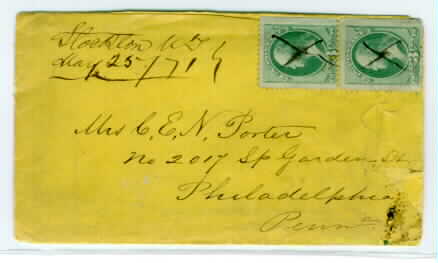 Stockton
May 25 / 71
Mrs C. E. N. Porter
No 2017 Sp Garden St
Philadelphia
Penn